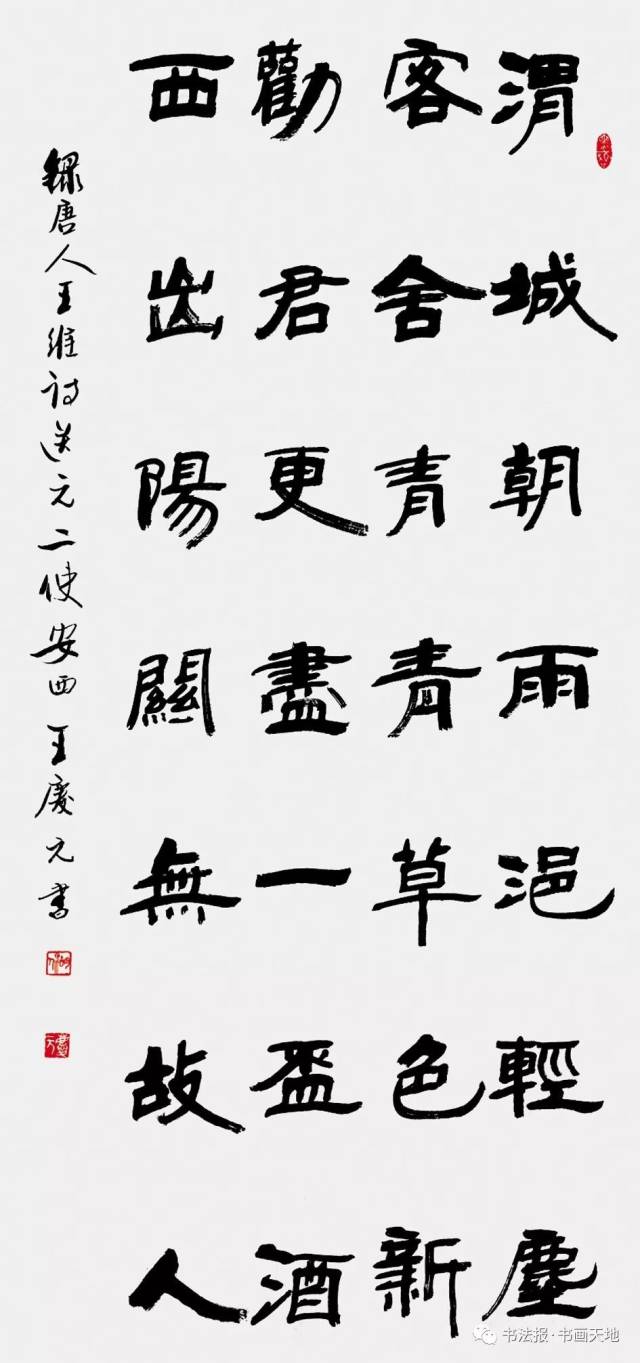 渭城朝雨浥輕塵
客舍青青草色新
勸君更盡一盃酒
西出陽關無故人
録唐人王維詩送元二使安西王慶元書
书法报·书画天地